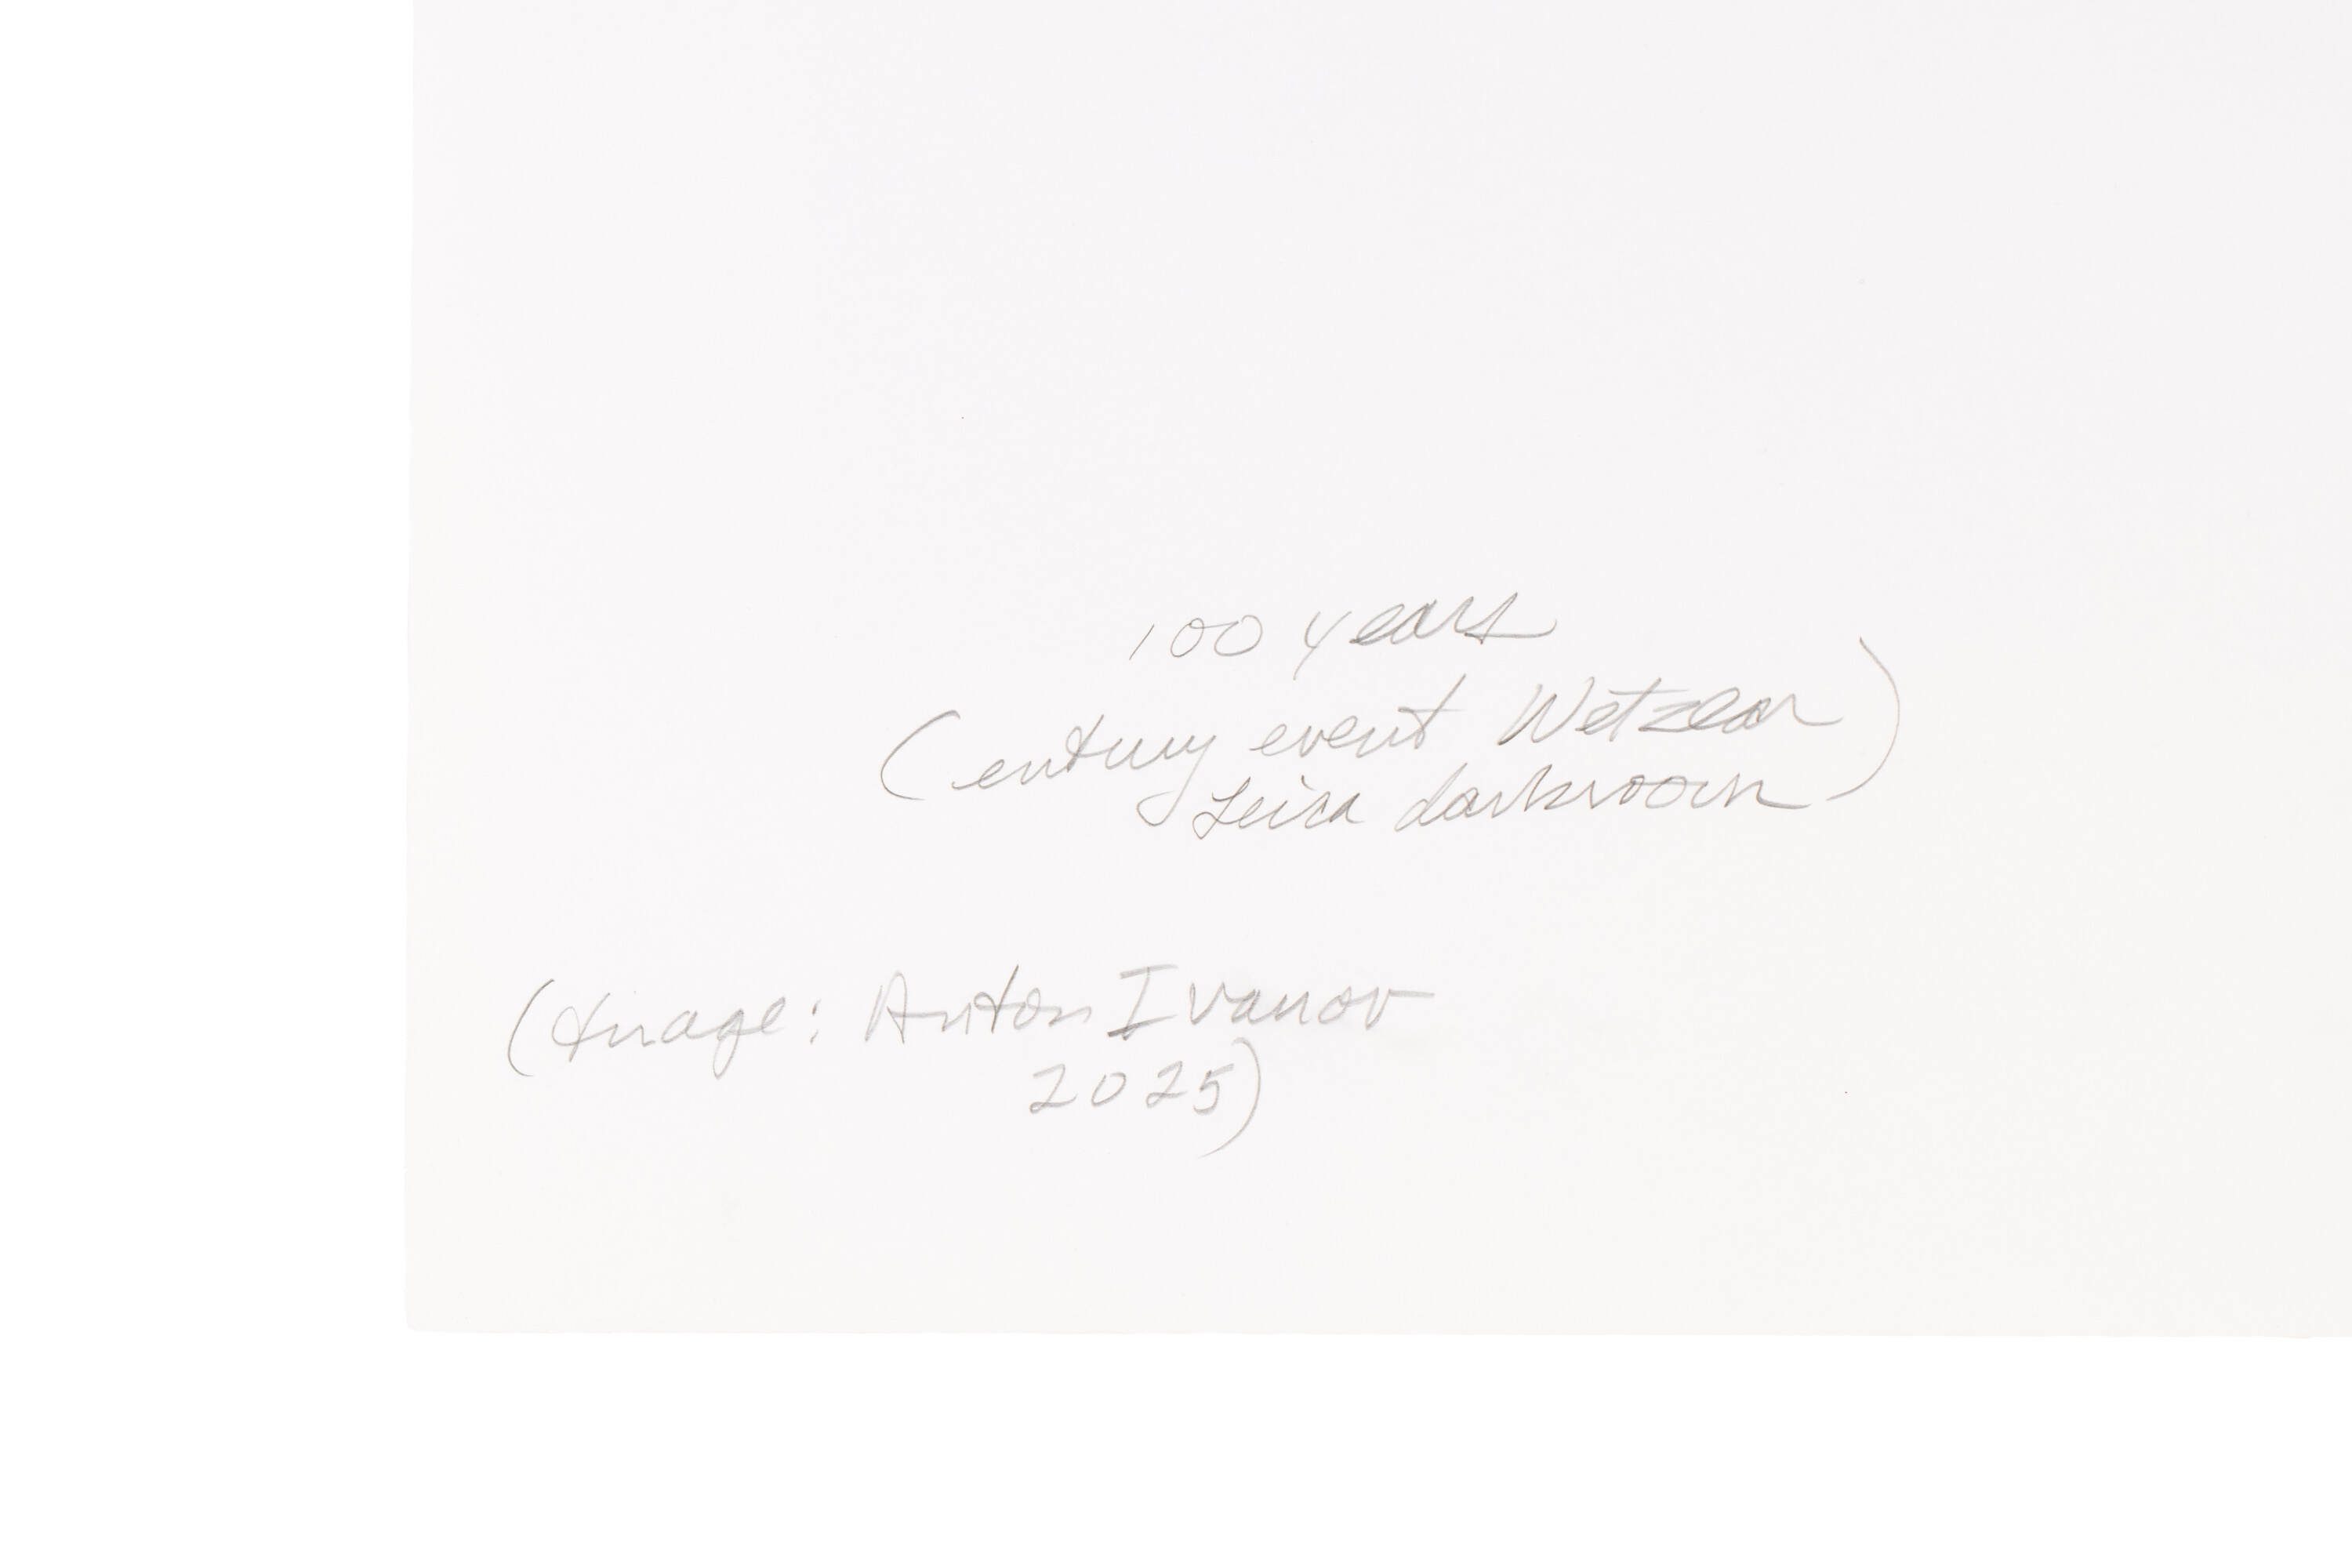 100 years
Century event Wetzlar)
Leica darkroom
(Image: Anton Ivanov
2025)